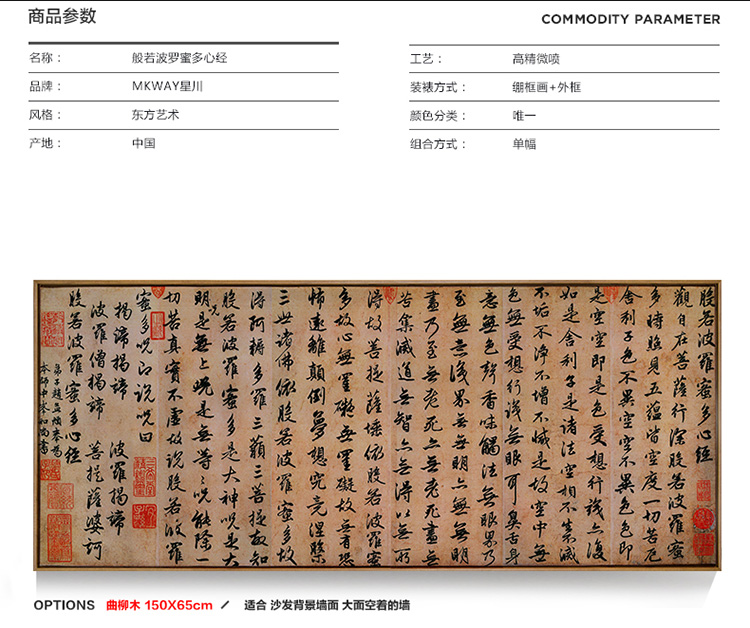 商品参数
COMMODITY PARAMETER
名称： 般若波罗蜜多心经
品牌： MKWAY星川
风格： 东方艺术
产地： 中国
工艺： 高精微喷
装裱方式： 绷框画+外框
颜色分类： 唯一
组合方式： 单幅
般若波羅蜜多心經
觀自在菩薩行深般若波羅蜜
多時照見五蘊皆空度一切苦厄
舍利子色不異空空不異色色即
是空空即是色受想行識亦復
如是舍利子是諸法空相不生不滅
不垢不淨不增不減是故空中無
色無受想行識無眼耳鼻舌身
意無色聲香味觸法無眼界乃
至無意識界無無明亦無無明
盡乃至無老死亦無老死盡無
苦集滅道無智亦無得以無所
得故菩提薩埵依般若波羅蜜
多故心無罣礙無罣礙故無有恐
怖遠離顛倒夢想究竟涅槃
三世諸佛依般若波羅蜜多故
得阿耨多羅三藐三菩提故知
般若波羅蜜多是大神呪是大
明呪是無上呪是無等等呪能除一
切苦真實不虛故說般若波羅
蜜多呪即說呪曰
揭諦揭諦 波羅揭諦
波羅僧揭諦 菩提薩婆訶
般若波羅蜜多心經
弟子趙孟頫奉為
本師中峯和尚書
OPTIONS 曲柳木 150X65cm / 适合 沙发背景墙面 大面空着的墙